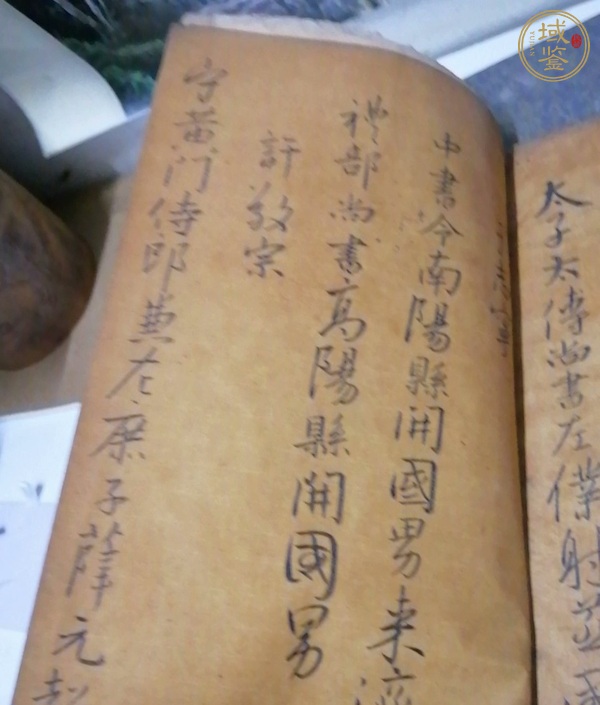 太子太傅尚書左僕射
中書令南陽縣開國男来濟
禮部尚書高陽縣開國男
許敬宗
守黄门侍郎兼左庶子薛元
域鉴